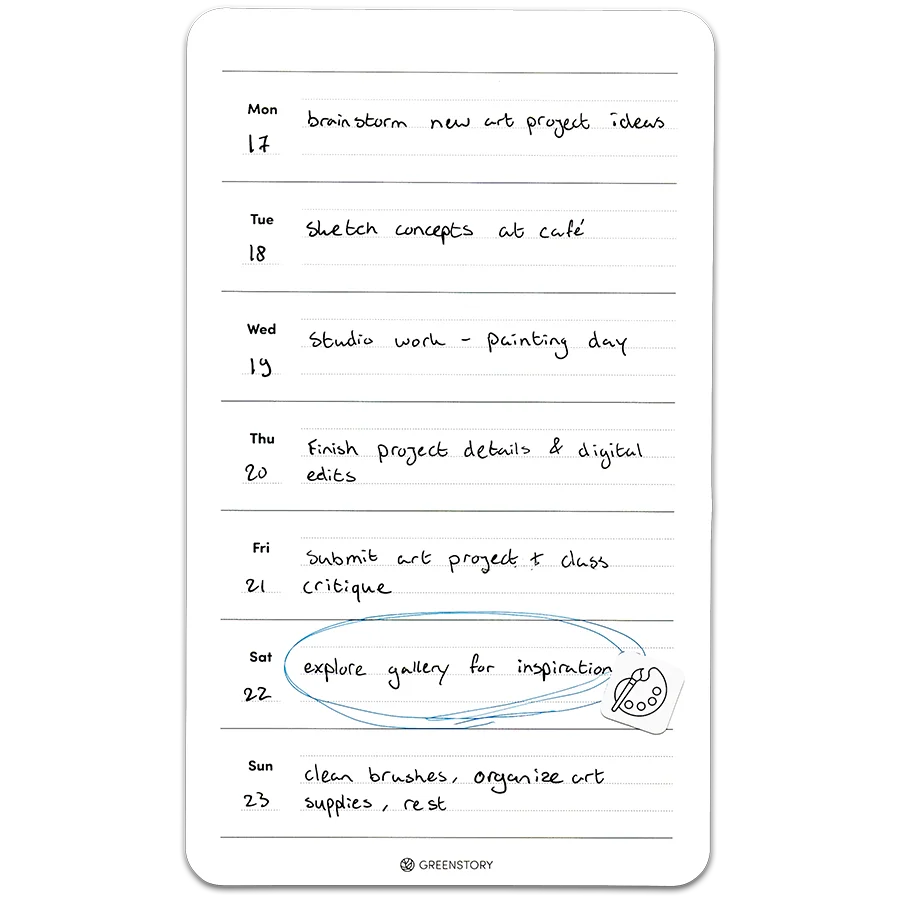 Mon
brainstorm new art project ideas
17
Tue
Sketch concepts at café
18
Wed
Studio work - painting day
19
Thu
Finish project details & digital
20
edits
Fri
Submit art project + class
21
critique
Sat
explore gallery for inspiration
22
Sun
clean brushes, organize art
23
supplies, rest
GREENSTORY